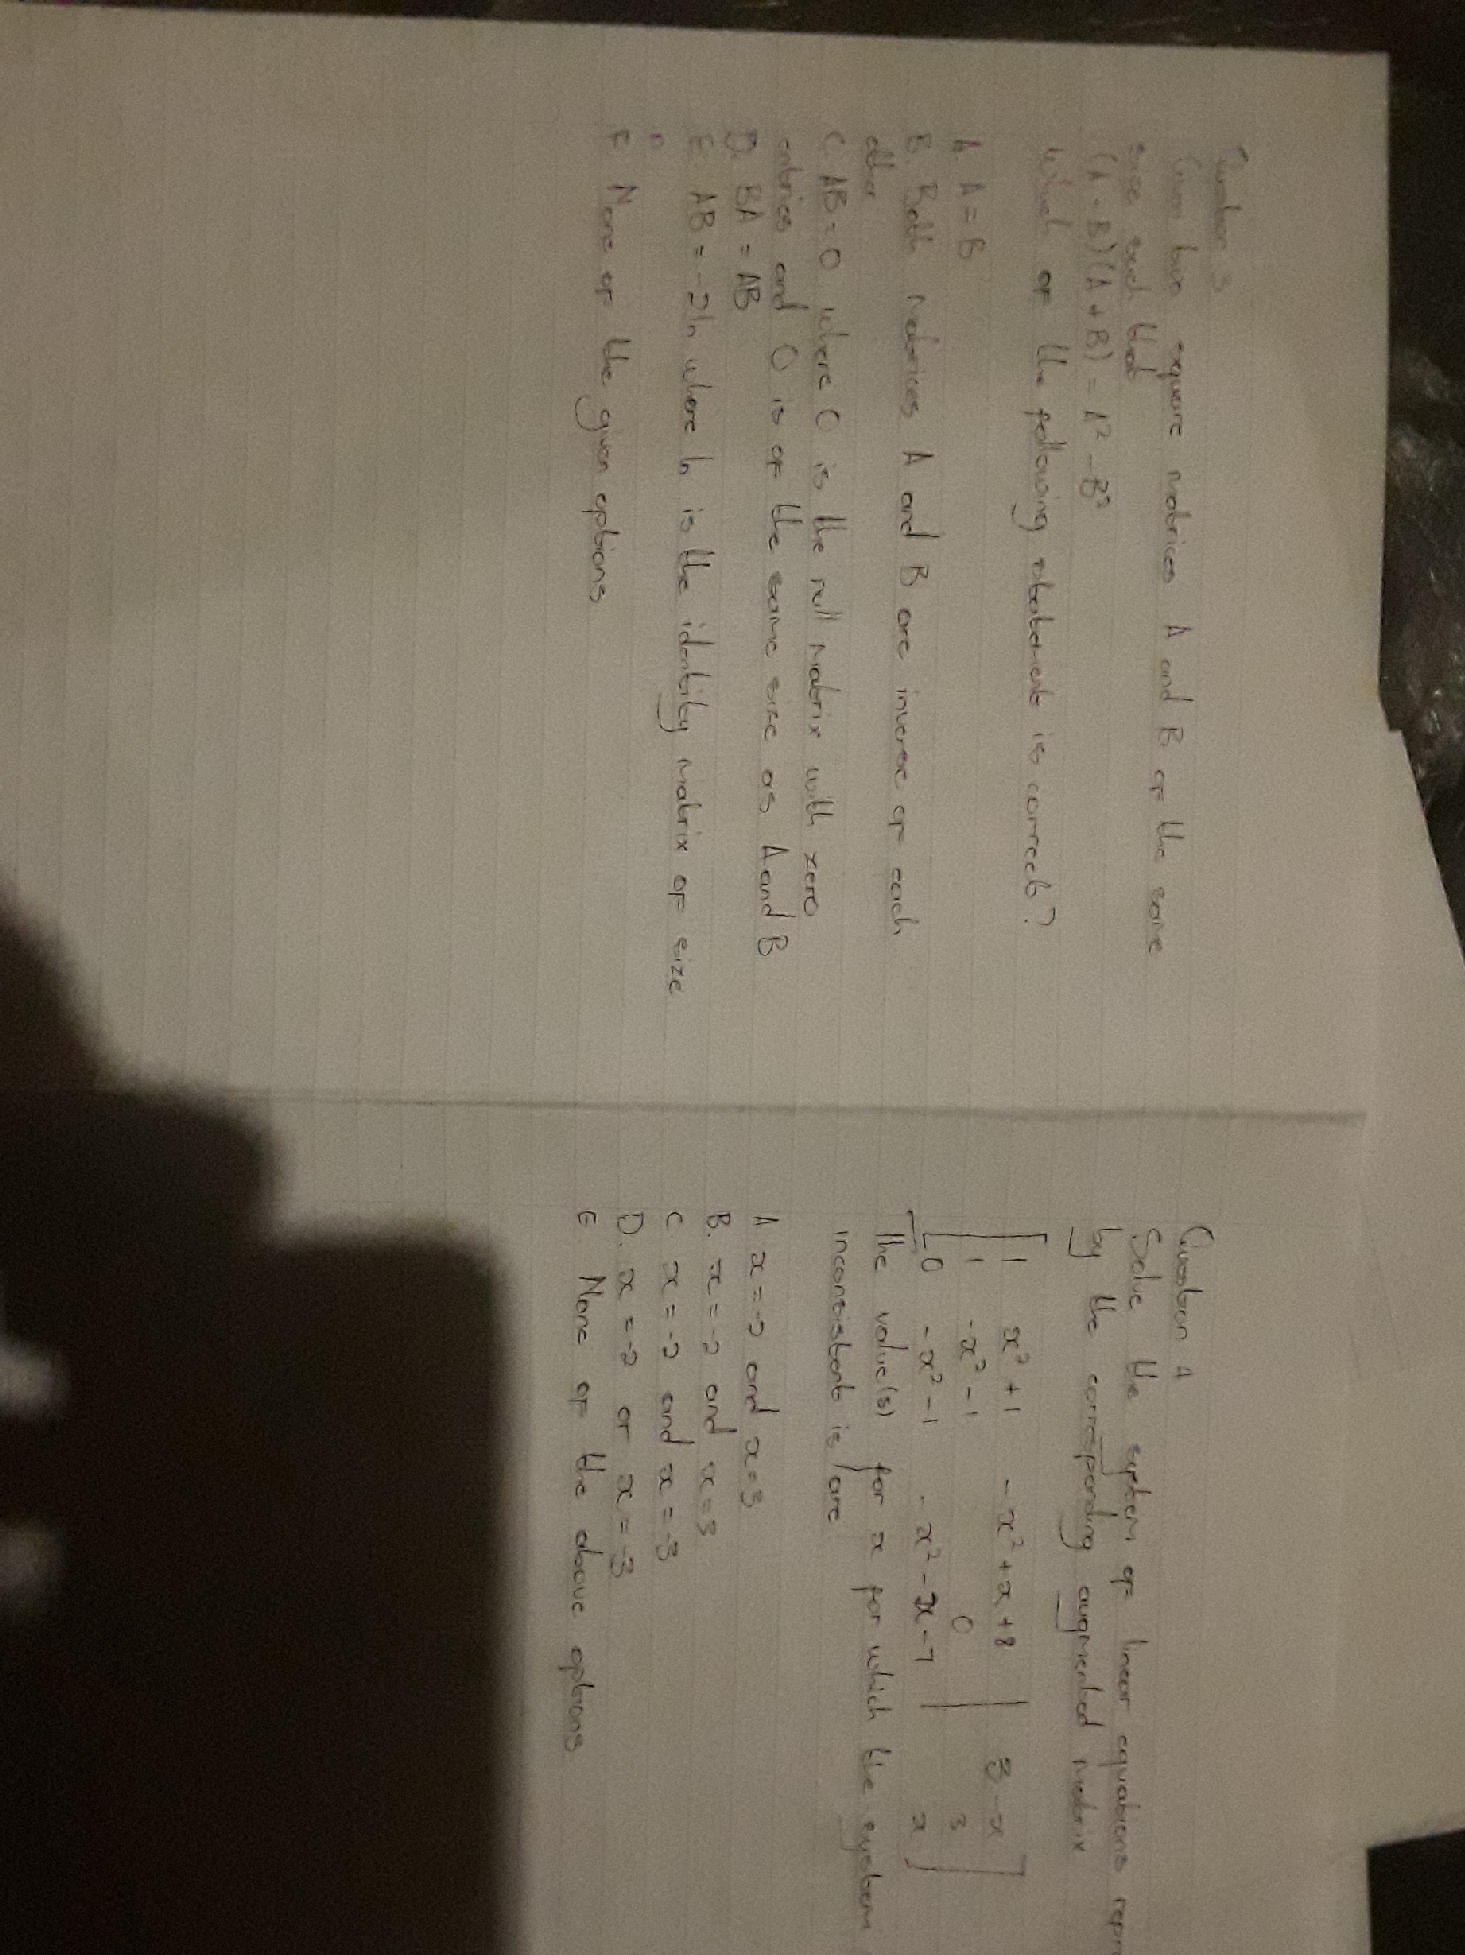 Question 3
Given two square matrices A and B of the same
size such that
(A - B)(A + B) = A² - B²
Which of the following statements is correct?
A. A = B
B. Both matrices A and B are inverse of each
other
C. AB = O where O is the null matrix with zero
entries and O is of the same size as A and B
D. BA = AB
E. AB = -2In where In is the identity matrix of size
n
F. None of the given options
Question 4
Solve the system of linear equations repr
by the corresponding augmented matrix
1 x² + 1 - x² + x + 8 | 3 - x
1 - x² - 1 0 | 3
0 - x² - 1 - x² - x - 7 | x
The value(s) for x for which the system
inconsistent is / are
A x = -2 and x = 3
B. x = -2 and x = 3
C x = -2 and x = -3
D. x = -2 or x = -3
E None of the above options